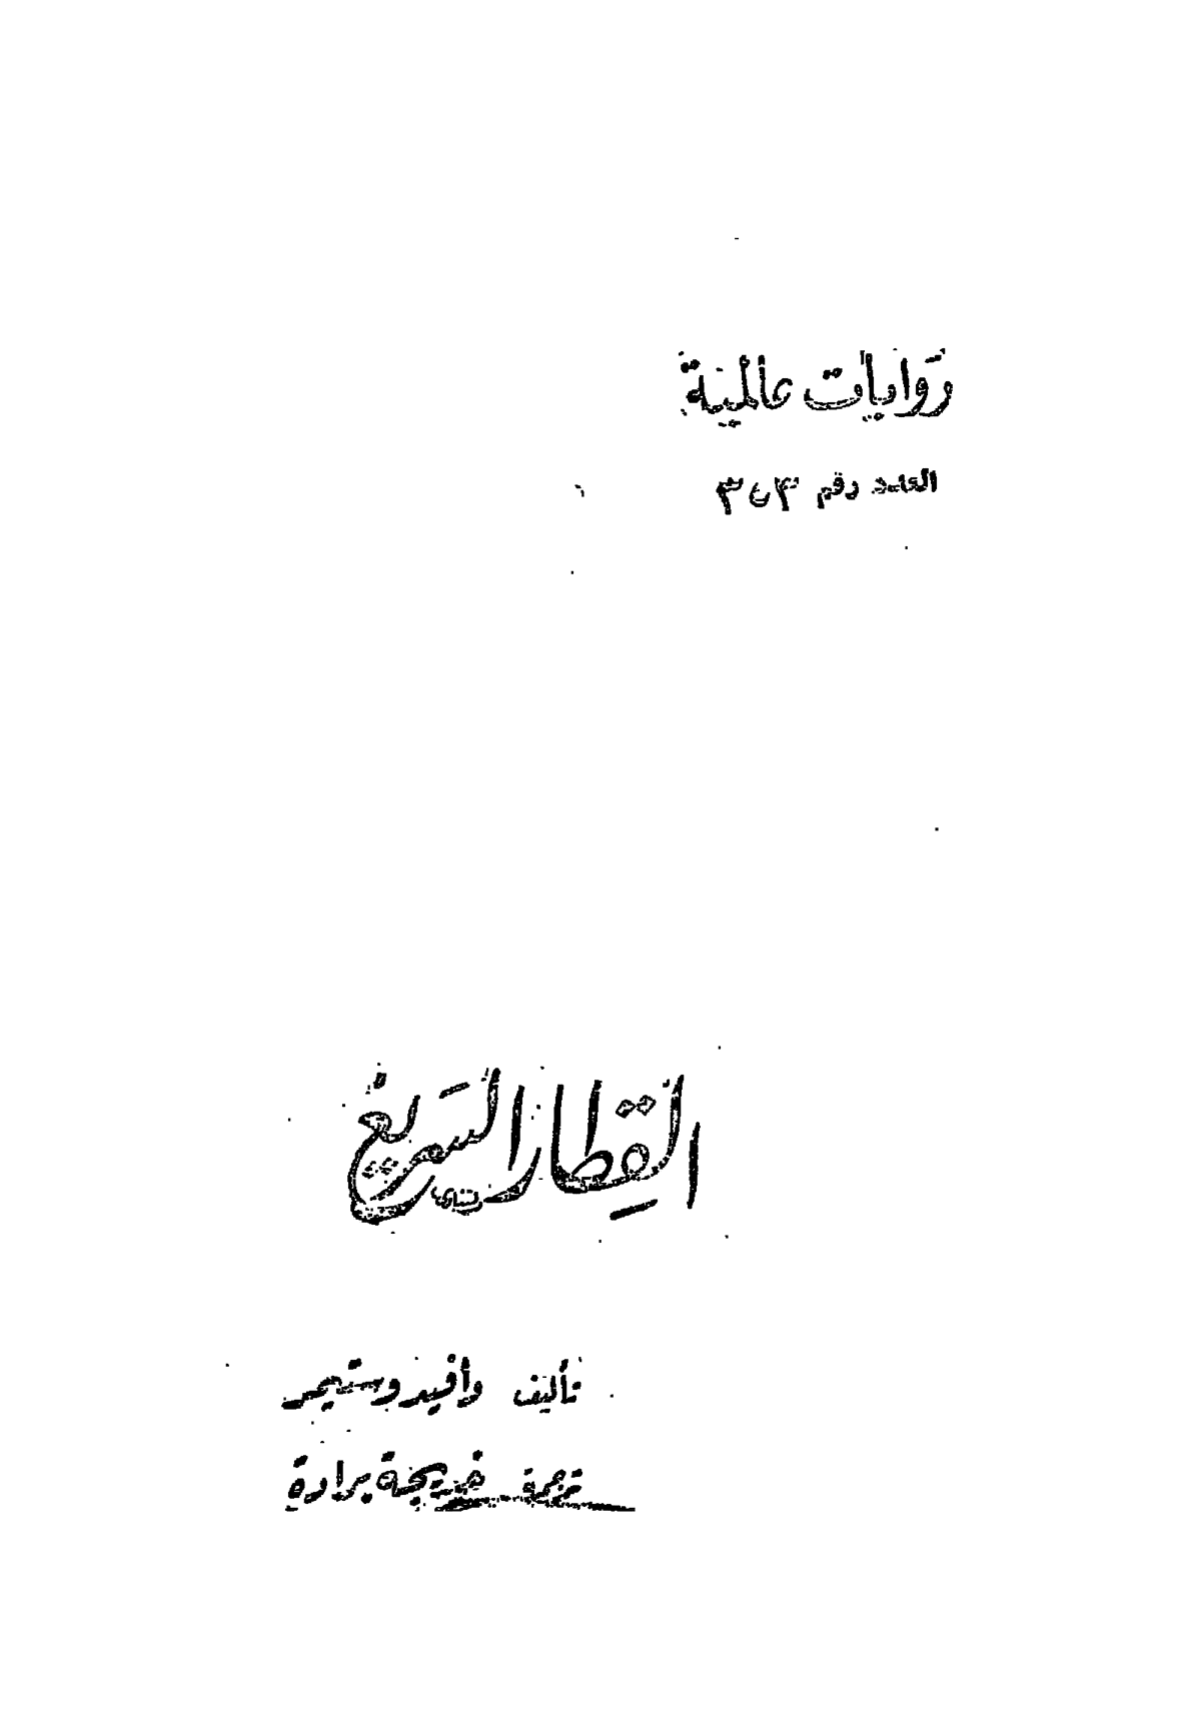 روايات عالمية
العدد رقم ٣٥٣
القطار السريع
تأليف دافيد وستيجر
ترجمة خديجة برادة